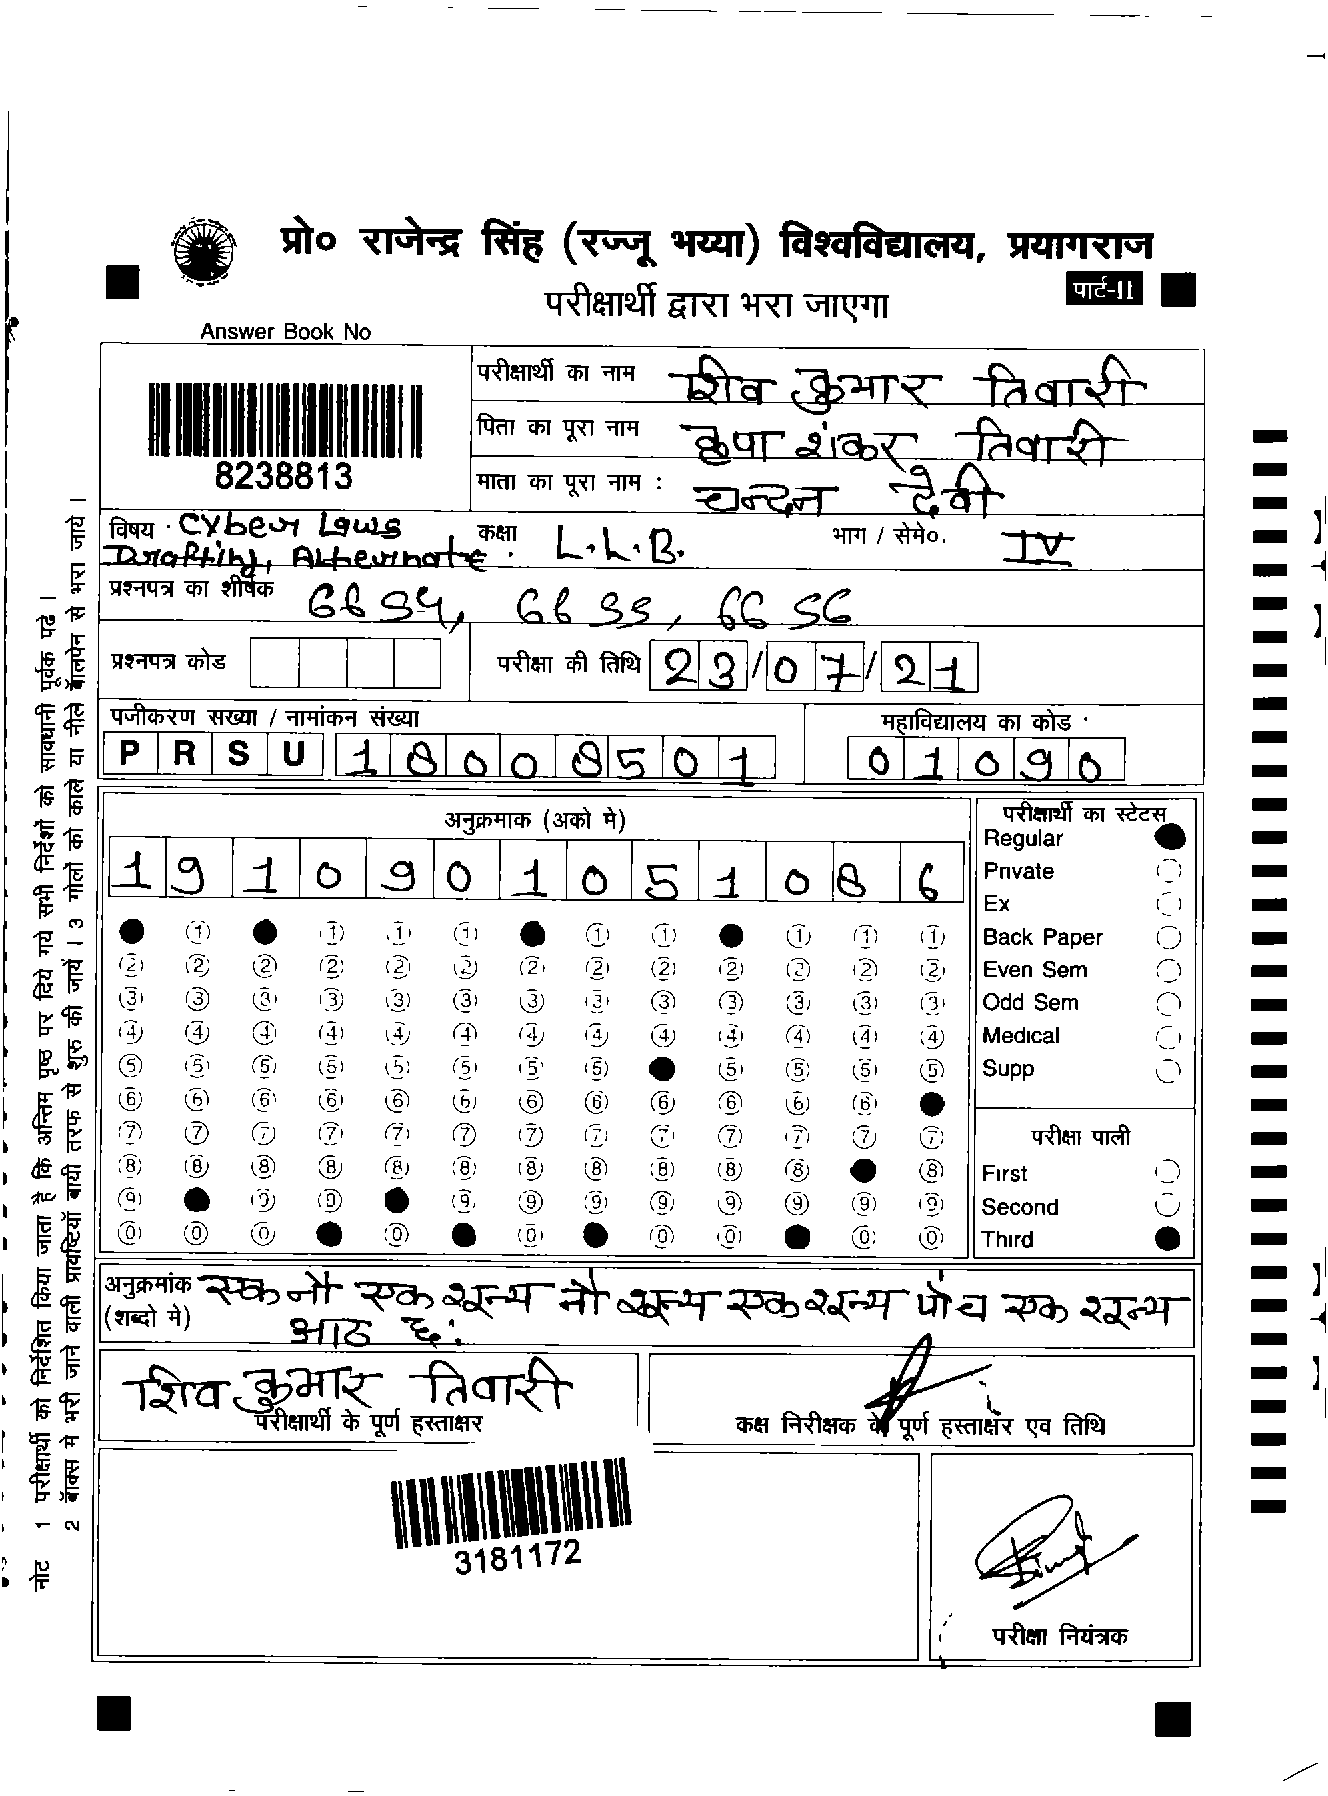 प्रो० राजेन्द्र सिंह (रज्जू भय्या) विश्वविद्यालय, प्रयागराज
पार्ट-II
परीक्षार्थी द्वारा भरा जाएगा
Answer Book No
8238813
परीक्षार्थी का नाम शिव कुमार तिवारी
पिता का पूरा नाम कृपा शंकर तिवारी
माता का पूरा नाम : चन्दन देवी
विषय . Cyber Laws
Drafting, Alternate .
कक्षा L.L.B.
भाग / सेमे०. IV
प्रश्नपत्र का शीर्षक 6654, 6655, 6656
प्रश्नपत्र कोड
परीक्षा की तिथि 23/07/21
पजीकरण सख्या / नामांकन संख्या
PRSU 18008501
महाविद्यालय का कोड
01090
अनुक्रमाक (अको मे)
1 9 1 0 9 0 1 0 5 1 0 8 6
1 1 1 1 1 1 1 1 1
2 2 2 2 2 2 2 2 2 2 2 2 2
3 3 3 3 3 3 3 3 3 3 3 3 3
4 4 4 4 4 4 4 4 4 4 4 4 4
5 5 5 5 5 5 5 5 5 5 5 5
6 6 6 6 6 6 6 6 6 6 6 6
7 7 7 7 7 7 7 7 7 7 7 7 7
8 8 8 8 8 8 8 8 8 8 8 8
9 9 9 9 9 9 9 9 9 9 9
0 0 0 0 0 0 0 0 0
परीक्षार्थी का स्टेटस
Regular
Private
Ex
Back Paper
Even Sem
Odd Sem
Medical
Supp
परीक्षा पाली
First
Second
Third
अनुक्रमांक एक नौ एक शून्य नौ शून्य एक शून्य पाँच एक शून्य
(शब्दो मे) आठ छः
शिव कुमार तिवारी
परीक्षार्थी के पूर्ण हस्ताक्षर
कक्ष निरीक्षक के पूर्ण हस्ताक्षर एव तिथि
3181172
परीक्षा नियंत्रक
नोट 1 परीक्षार्थी को निर्देशित किया जाता है कि अन्तिम पृष्ठ पर दिये गये सभी निर्देशों को सावधानी पूर्वक पढे ।
2 बॉक्स मे भरी जाने वाली प्रविष्टियॉ बायी तरफ से शुरु की जायें । 3 गोलो को काले या नीले बॉलपेन से भरा जाये ।